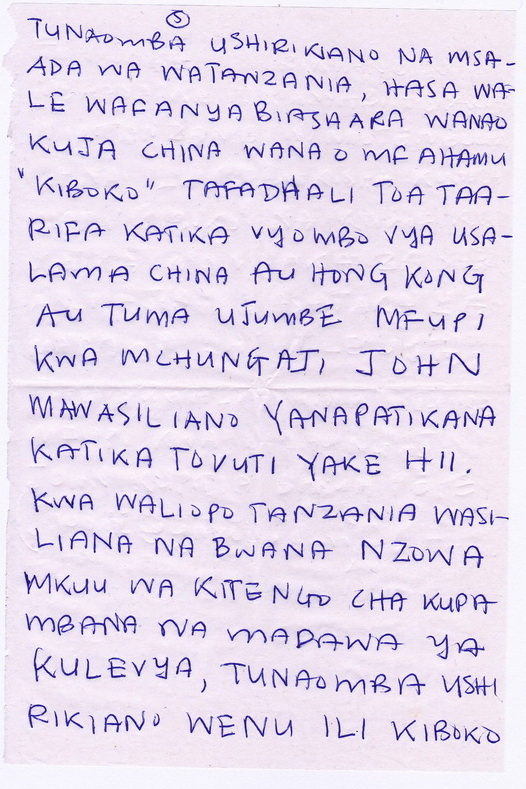 5
TUNAOMBA USHIRIKIANO NA MSA-
ADA WA WATANZANIA, HASA WA-
LE WAFANYABIASAARA WANAO
KUJA CHINA WANAO MFAHAMU
"KIBOKO" TAFADHALI TOA TAA-
RIFA KATIKA VYOMBO VYA USA-
LAMA CHINA AU HONG KONG
AU TUMA UJUMBE MFUPI
KWA MCHUNGAJI JOHN
MAWASILIANO YANAPATIKANA
KATIKA TOVUTI YAKE HII.
KWA WALIOPO TANZANIA WASI-
LIANA NA BWANA NZOWA
MKUU WA KITENGO CHA KUPA
MBANA NA MADAWA YA
KULEVYA, TUNAOMBA USHI
RIKIANO WENU ILI KIBOKO